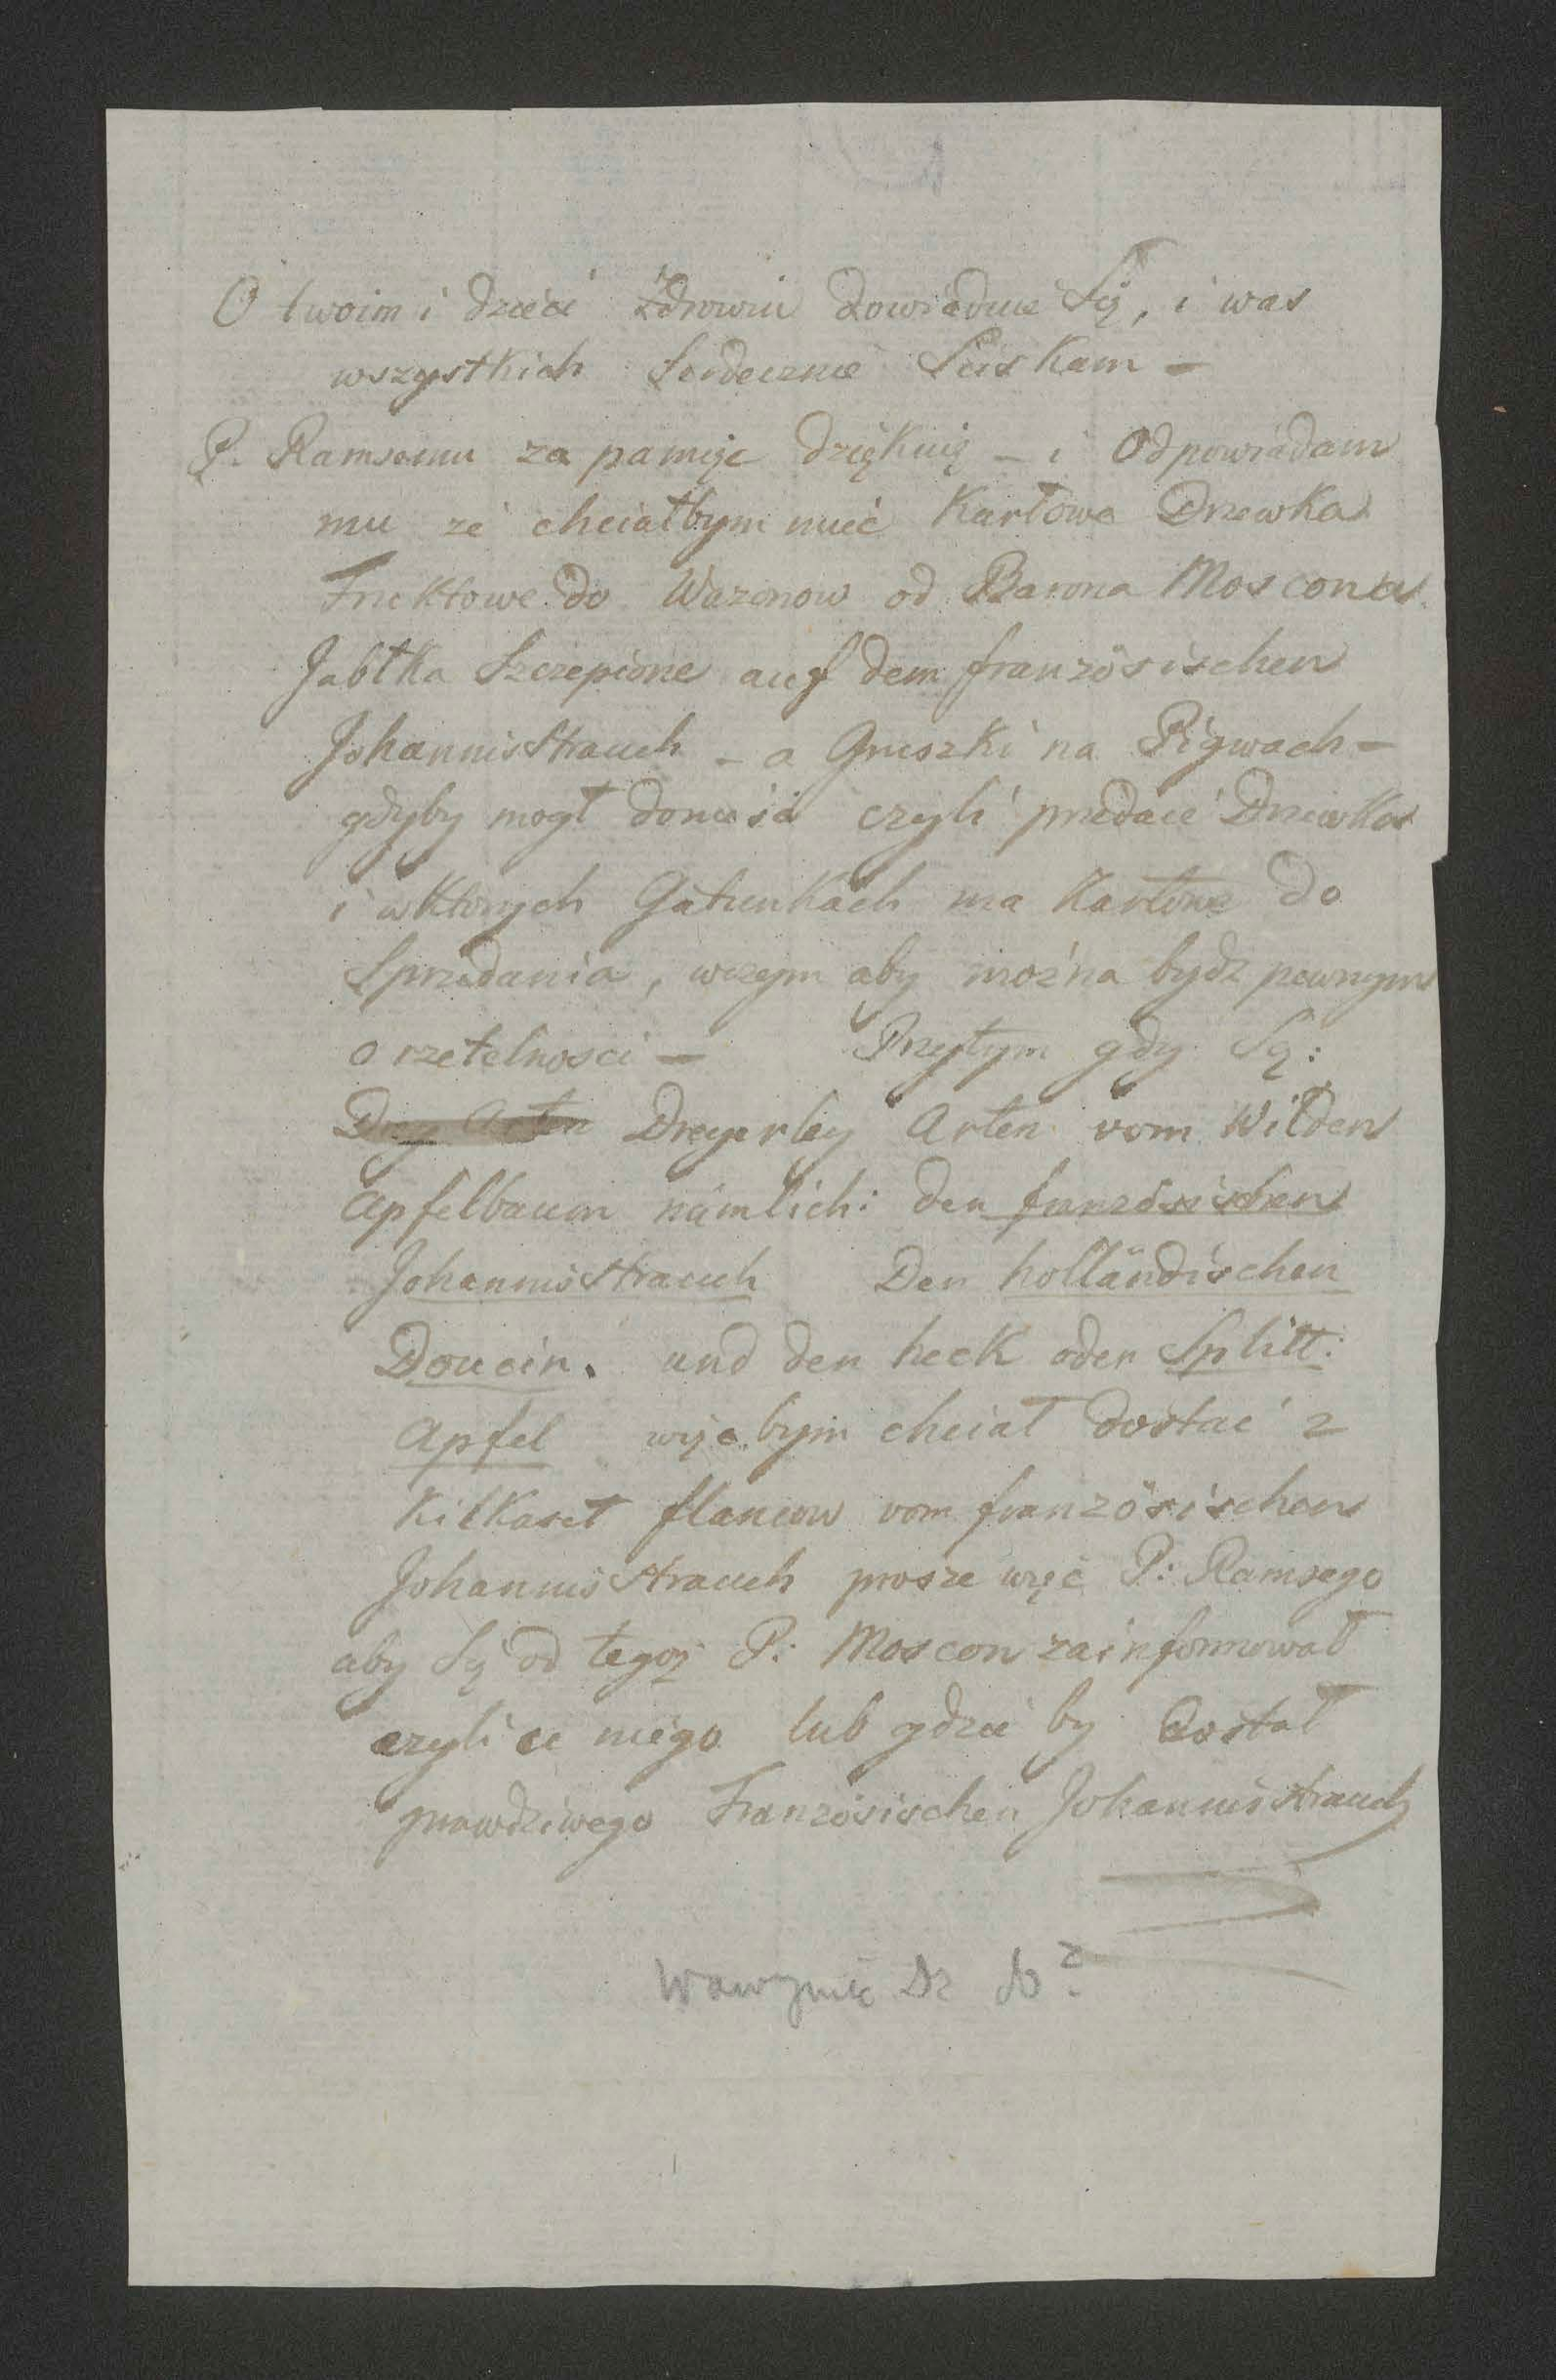 O twoim i dzieci Zdrowiu dowiaduie Się, i was
wszystkich Serdecznie Sciskam –
P. Ramsemu za pamięc dziękuię – i Odpowiadam
mu ze chciałbym mieć Karłowe Drzewka
Fruktowe do Wazonow od Barona Moscona
Jabłka Szczepione auf dem französischen
Johannisstrauch – a Gruszki na Pigwach –
gdyby mogł doniesić czyli przedaie Drzewka
i w Ktorych Gatunkach ma Karłowe do
Sprzedania, wczym aby można bydz pewnym
o rzetelnosci – Przytym gdy Są:
Drey Arten Dreyerley Arten vom Wilden
Apfelbaum nämlich: den französischen
Johannisstrauch Den holländischen
Doucin. und den heck oder Splitt:
Apfel więc bym chciał dostać z
Kilkaset flancow vom französischen
Johannisstrauch prosze więc P: Ramsego
aby Się od tegoz P: Moscon zainformował
czyli u niego lub gdzie by dostał
prawdziwego Französischen Johannisstrauch